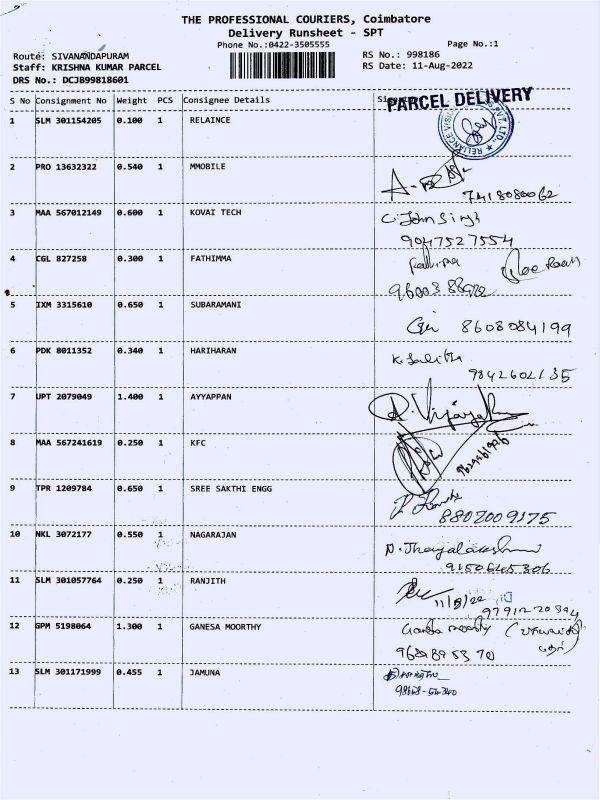 THE PROFESSIONAL COURIERS, Coimbatore
Delivery Runsheet - SPT
Phone No.:0422-3505555
Page No.:1
Route: SIVANANDAPURAM
RS No.: 998186
Staff: KRISHNA KUMAR PARCEL
RS Date: 11-Aug-2022
DRS No.: DCJB99818601
S No Consignment No Weight PCS Consignee Details
PARCEL DELIVERY
1 SLM 301154205 0.100 1 RELAINCE
2 PRO 13632322 0.540 1 MMOBILE
7418080062
3 MAA 567012149 0.600 1 KOVAI TECH C. John Singh
9047527554
4 CGL 827258 0.300 1 FATHIMMA
5 IXM 3315610 0.650 1 SUBARAMANI
8608084199
6 PDK 8011352 0.340 1 HARIHARAN K. Lalitha
9842602135
7 UPT 2079049 1.400 1 AYYAPPAN
8 MAA 567241619 0.250 1 KFC
9 TPR 1209784 0.650 1 SREE SAKTHI ENGG
8802009375
10 NKL 3072177 0.550 1 NAGARAJAN
9150645306
11 SLM 301057764 0.250 1 RANJITH
11/8/22
12 GPM 5198064 1.300 1 GANESA MOORTHY
13 SLM 301171999 0.455 1 JAMUNA